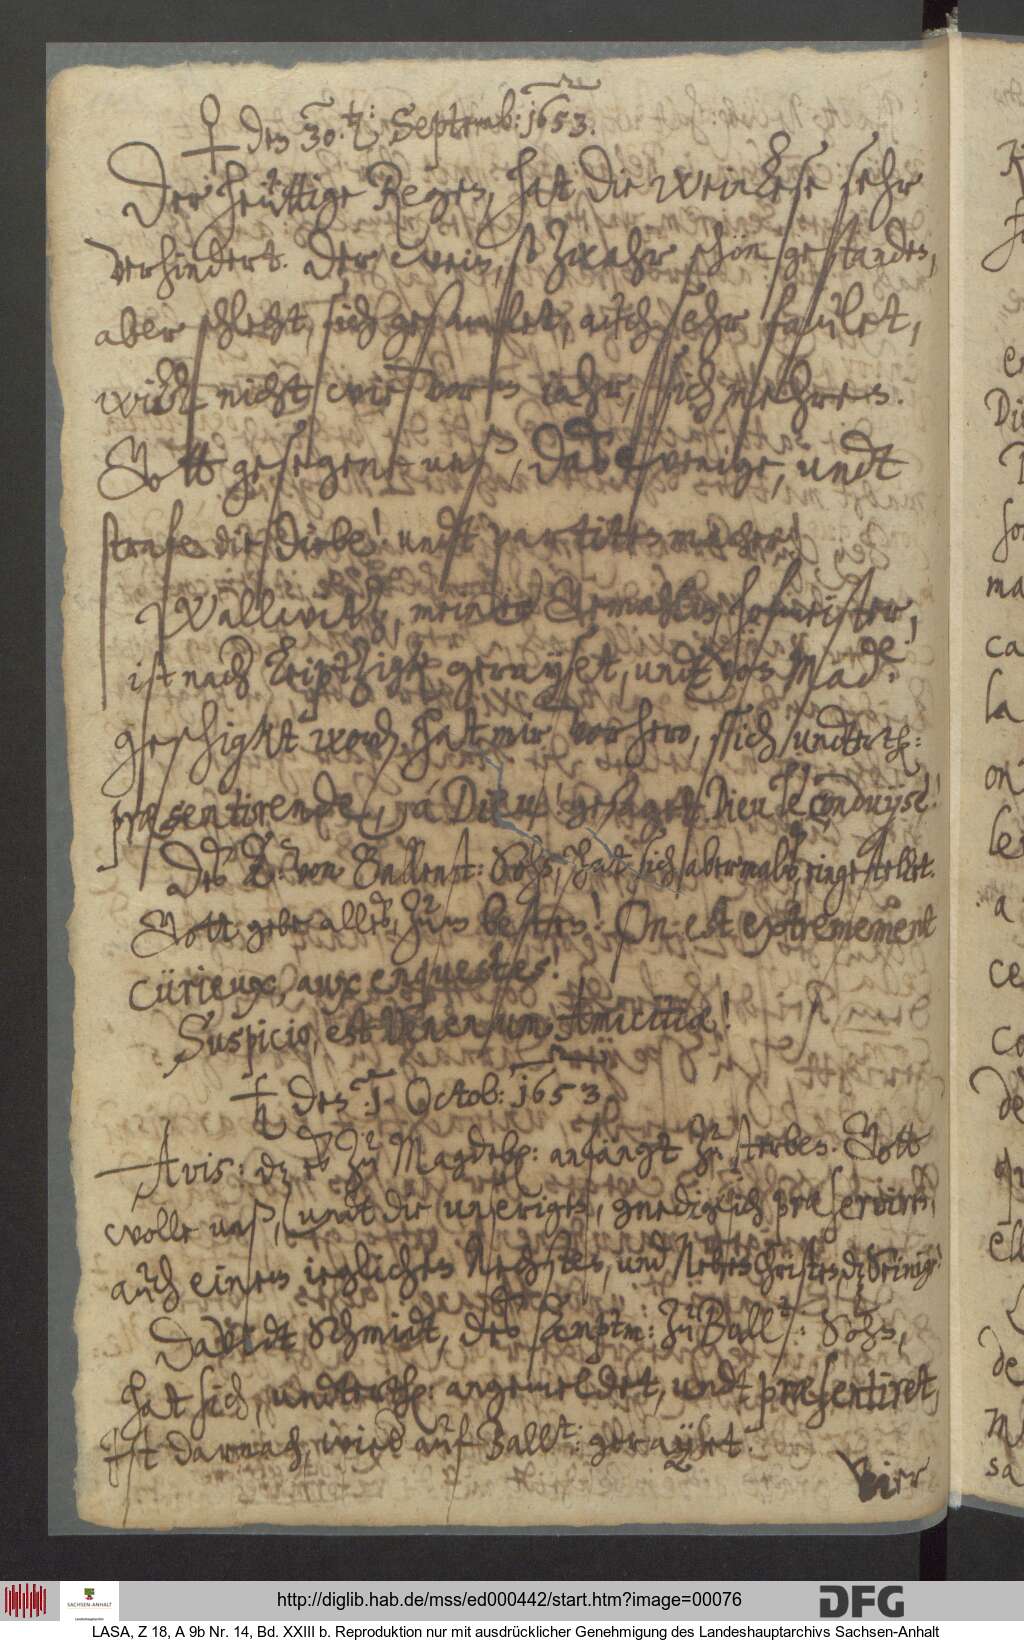 ♀ den 30.t: Septemb: 1653.
Der heüttige Regen, hat die weinlese sehr
verhindert. Der wein, so zwahr schön gestanden,
aber schlecht, sich gesamlet, auch sehr faulet,
wirdt nicht wie vorm iahr, sich mehren.
Gott gesegene unß, daß wenige, undt
strafe die Diebe! undt partittenmacher!
Wallwitz, meiner Gemahlin, hofmeister,
ist nach Leiptzigk gerayset, undt von Mad.e
geschigkt word. hat mir vorhero, sich undterth:
præsentirende, à Dieu! gesaget. Dieu le conduyse!
Des von Ballenst: Sohn, hat sich abermalß, eingestellet.
Gott gebe alles, zum besten! On est extremement
cürieux, aux enquestes!
Suspicio, est Venenum Amicitiæ!
♄ den 1. Octob: 1653.
Avis: dz es zu Magdeb: anfängt zu sterben. Gott
wolle unß, undt die unserigen, gnediglich præserviren,
auch einen ieglichen Nechsten, und NebenChristen, d. Seinige!
Davidt Schmidt, des Haeuptm: zu Ball: Sohn,
hat sich, undterth: angemeldet, undt præsentiret,
Ist darnach, wied auf Ball: gerayset.
Vier
http://diglib.hab.de/mss/ed000442/start.htm?image=00076
SACHSEN-ANHALT
DFG
LASA, Z 18, A 9b Nr. 14, Bd. XXIII b. Reproduktion nur mit ausdrücklicher Genehmigung des Landeshauptarchivs Sachsen-Anhalt